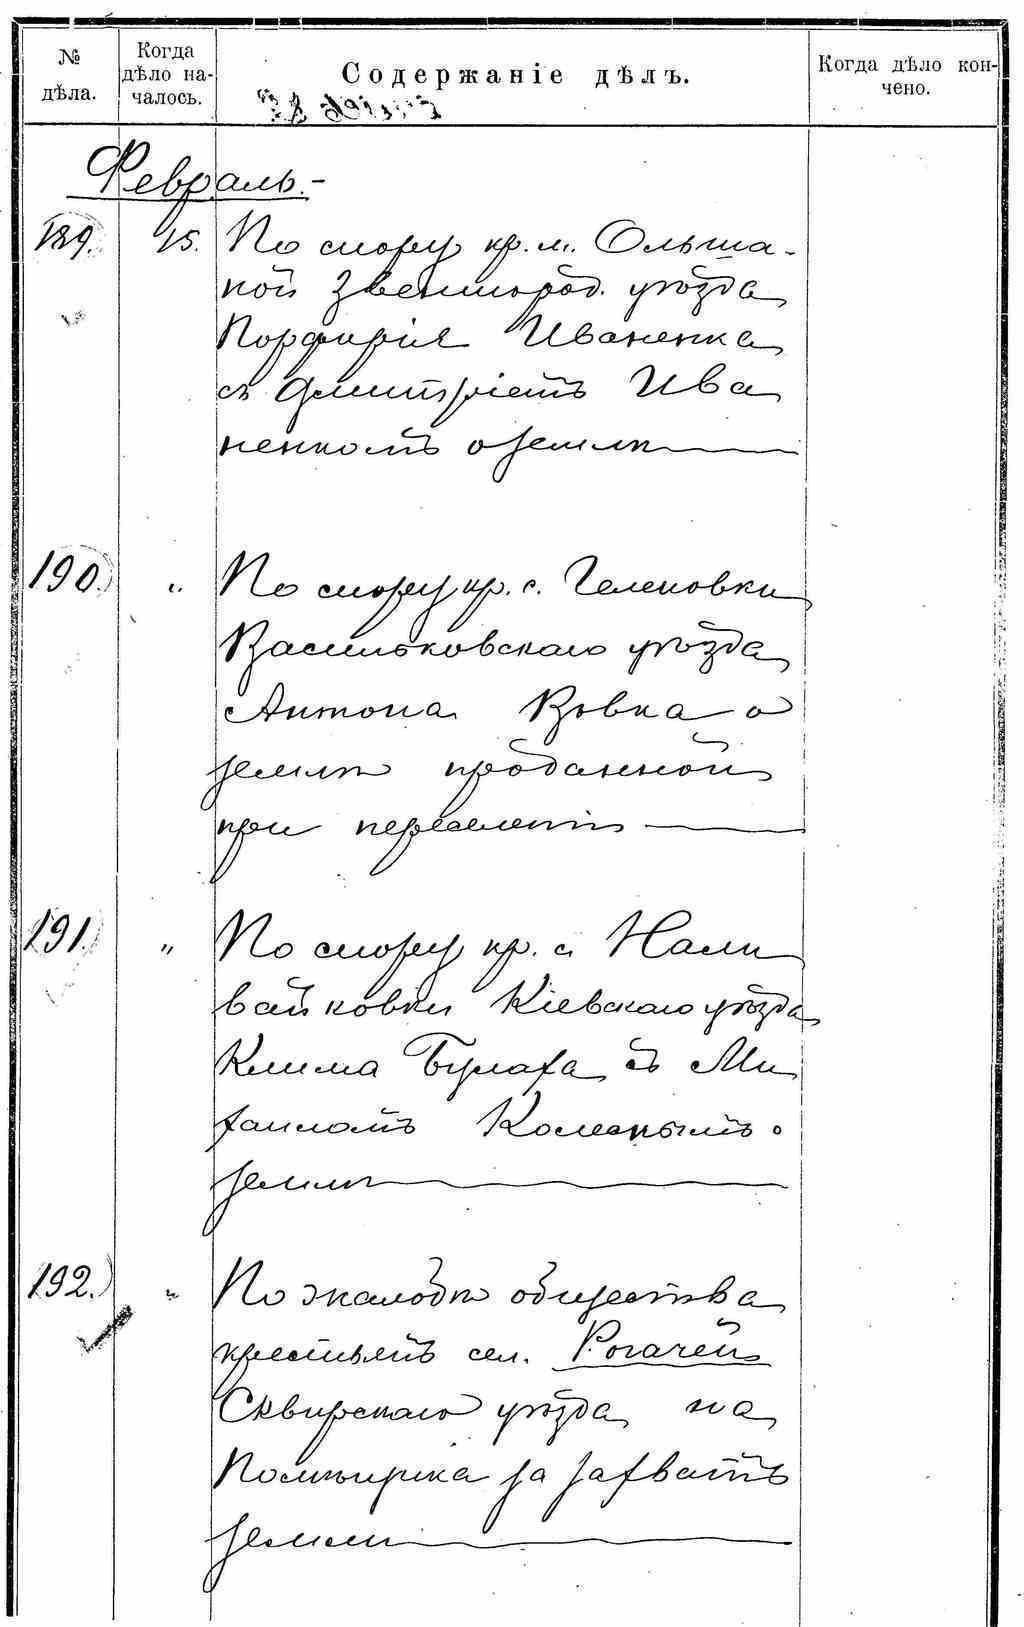 № дѣла.
Когда дѣло на-
чалось.
Содержаніе дѣлъ.
Когда дѣло кон-
чено.
Февраль.-
189. 15. По спору кр. м. Ольша-
ной Звенигород. уѣзда
Порфирія Иваненка
съ Дмитріемъ Ива
ненкомъ о землѣ
190. " По спору кр. с. Телеповки
Васильковскаго уѣзда
Антона Вовка о
землѣ проданной
при переселеніи
191. " По спору кр. с. Нали
вайковки Кіевскаго уѣзда
Клима Булаха съ Ми
хаиломъ о
землѣ
192. " По жалобѣ общества
крестьянъ сел. Рогачей
Сквирскаго уѣзда на
помѣщика за захватъ
земли